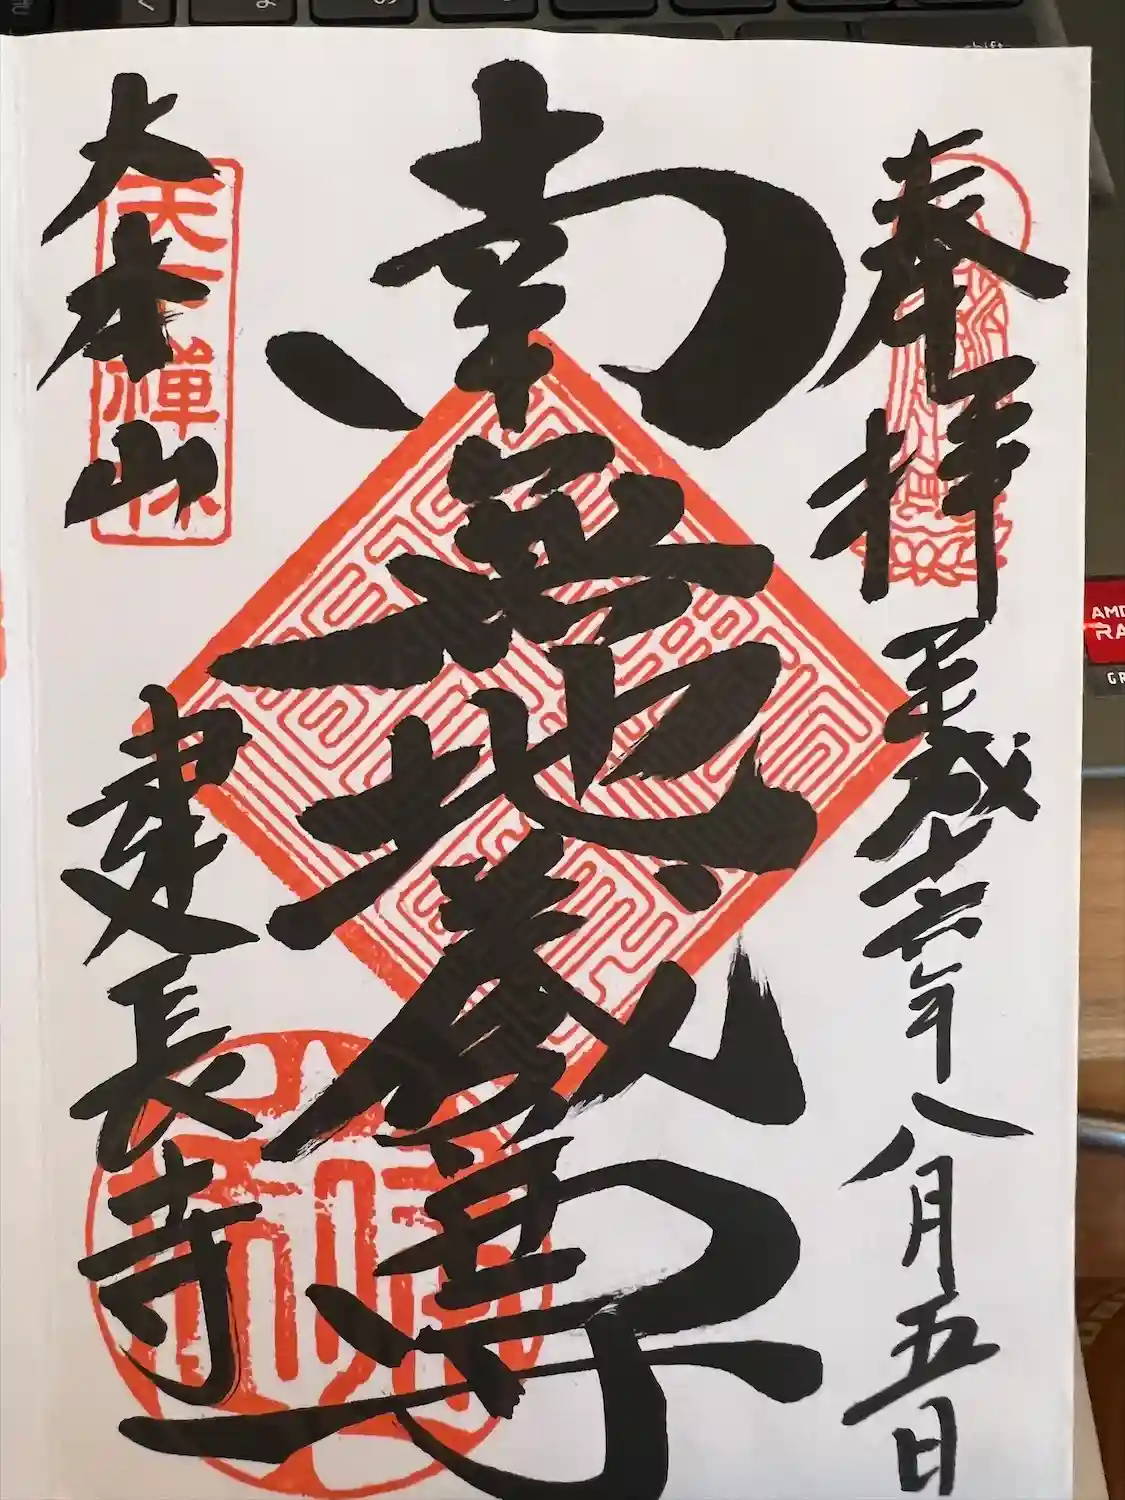 奉拝 平成十六年八月五日
南無地蔵尊
大本山 建長寺
天下禪林
shift
AMD
RA
GR